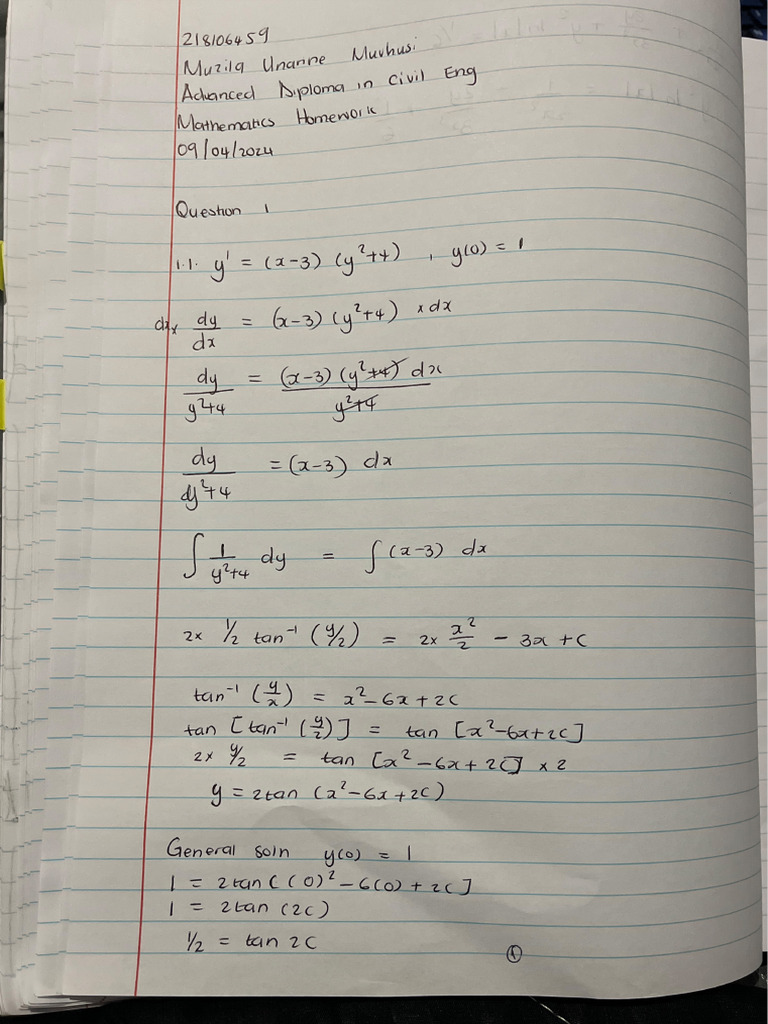 218106459
Muzila Unanne Muvhusi
Advanced Diploma in Civil Eng
Mathematics Homework
09/04/2024
Question 1
1.1. y' = (x-3) (y²+4) , y(0) = 1
dx × dy/dx = (x-3) (y²+4) × dx
dy/y²+4 = (x-3) (y²+4) dx / y²+4
dy/dy²+4 = (x-3) dx
∫ 1/y²+4 dy = ∫ (x-3) dx
2× 1/2 tan⁻¹ (y/2) = 2× x²/2 - 3x + c
tan⁻¹ (y/x) = x² - 6x + 2c
tan [tan⁻¹ (y/2)] = tan [x²-6x+2c]
2× y/2 = tan [x² - 6x + 2c] × 2
y = 2tan (x²-6x+2c)
General soln y(0) = 1
1 = 2tan ((0)² - 6(0) + 2c]
1 = 2tan (2c)
1/2 = tan 2c
①